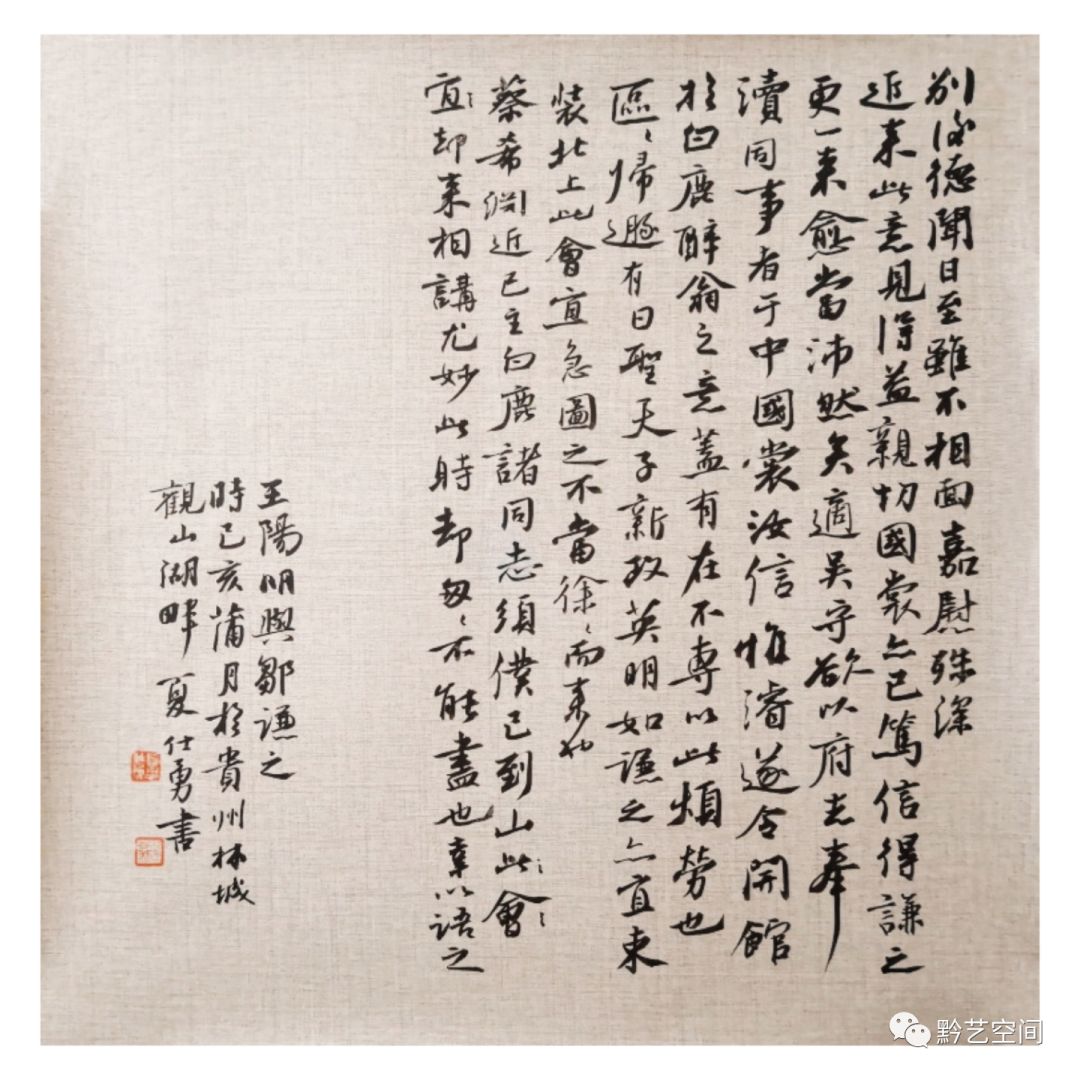 别後德聞日至雖不相面嘉慰殊深
近来此意見得益親切國裳亦已篤信得謙之
更一来愈當沛然矣適吴守欲以府志奉
瀆同事者于中國裳汝信惟濬遂令開館
於白鹿醉翁之意蓋有在不專以此煩勞也
區〻歸遯有日聖天子新政英明如謙之亦宜束
裝北上此會宜急圖之不當徐〻而来也
蔡希渊近已主白鹿諸同志須僕已到山此〻會〻
宜〻却来相講尤妙此時却匆〻不能盡也幸以語之
王陽明與鄒謙之
時己亥蒲月於貴州林城
觀山湖畔 夏仕勇書
黔艺空间